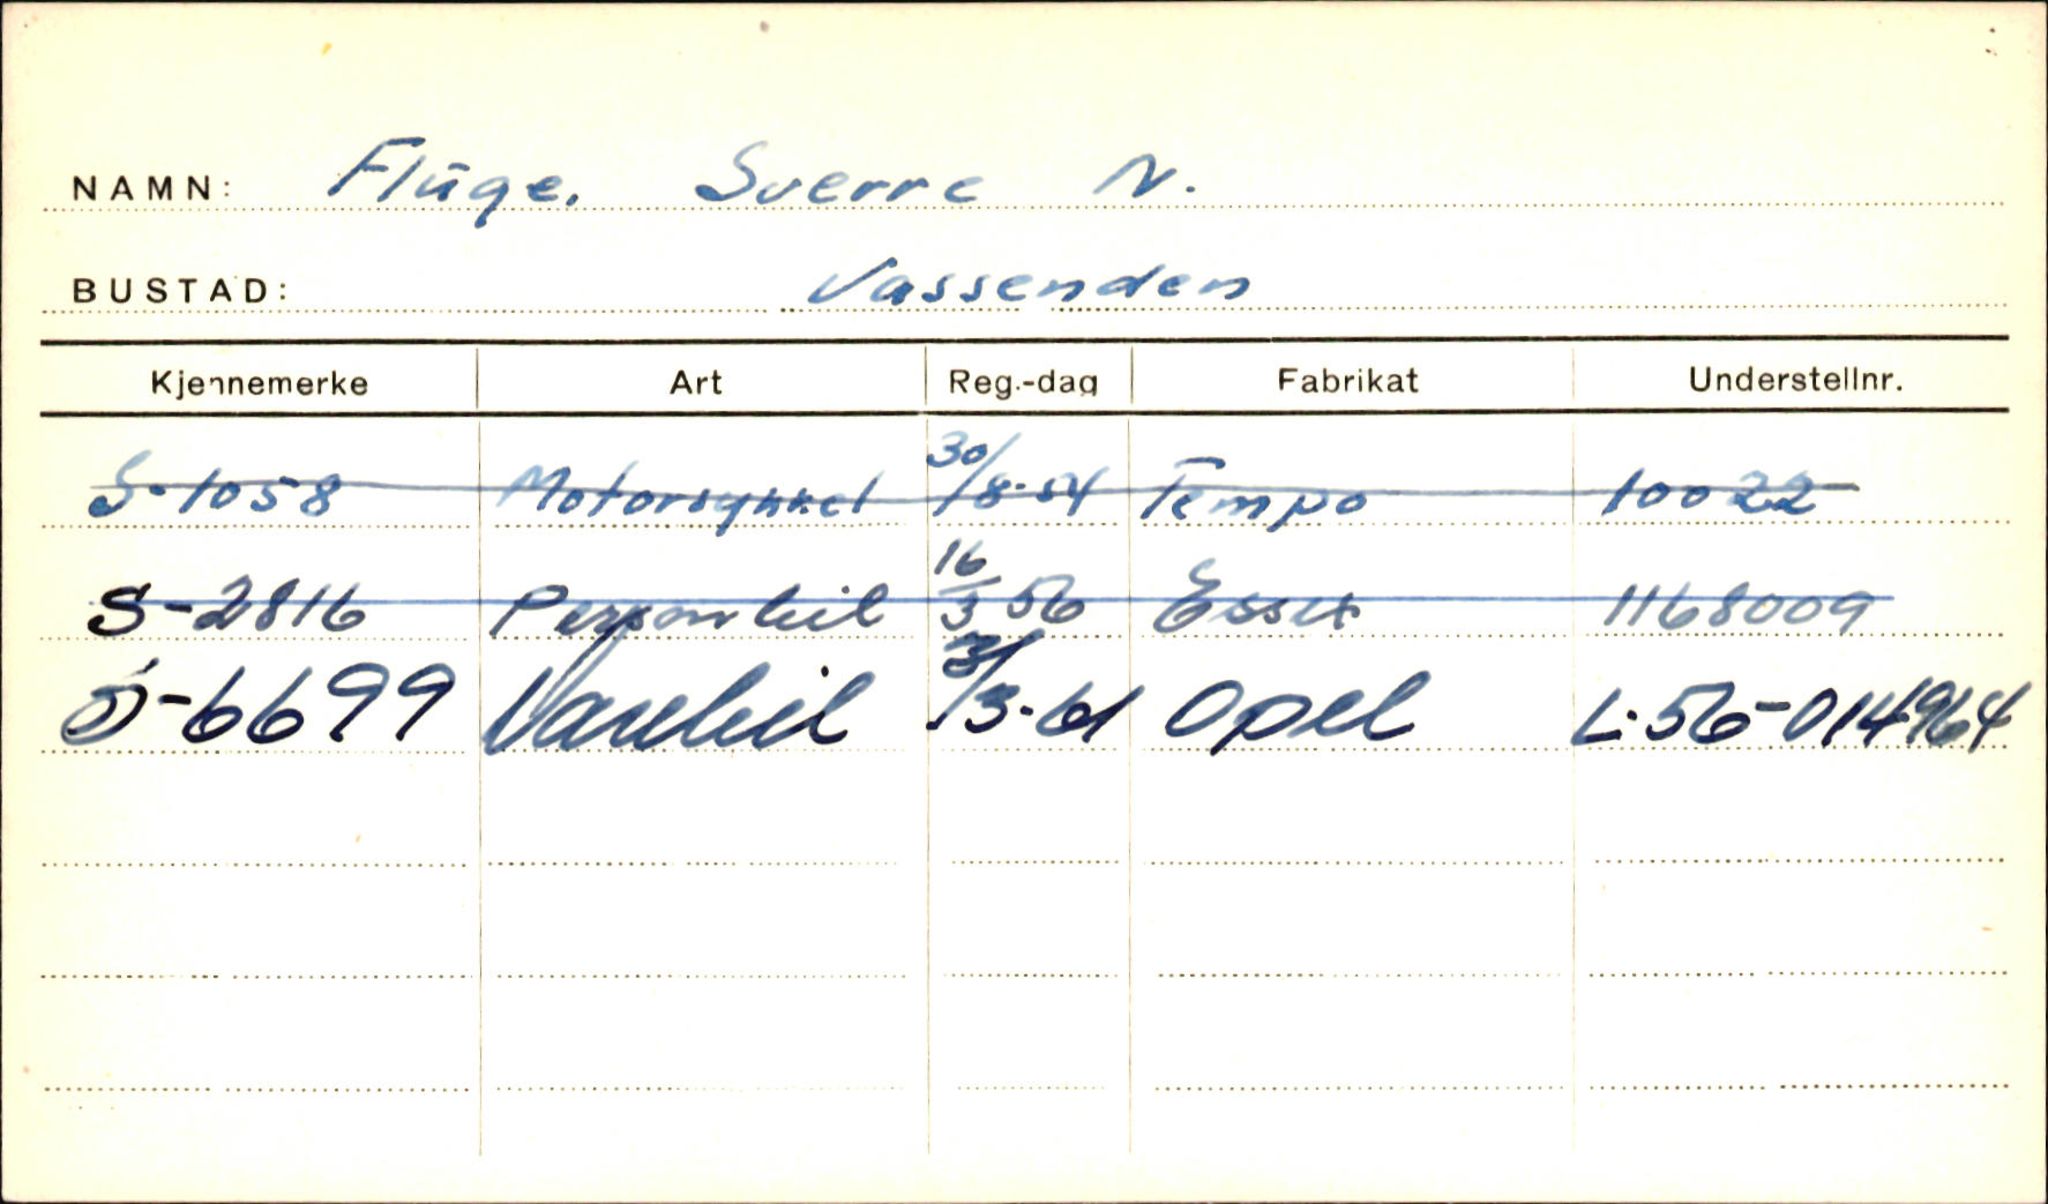 NAMN: Flūge. Sverre N.
BUSTAD: Vassenden
Kjennemerke Art Reg.-dag Fabrikat Understellnr.
S-1058 Motorsykkel 30/8-54 Tempo 10022
S-2816 Personbil 16/3 56 Essex 1168009
S-6699 Varebil /3-61 Opel L-56-014964